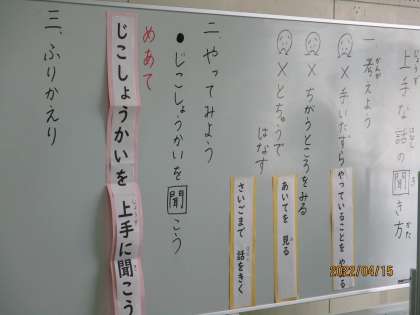 上手な話の聞き方
一 考えよう
かんが
× 手いたずら
やっていることを やめる
× ちがうところをみる
あいてを 見る
× とちゅうではなす
さいごまで 話をきく
二 やってみよう
●じこしょうかいを聞こう
めあて
じこしょうかいを 上手に聞こう
三、ふりかえり
2022/04/15